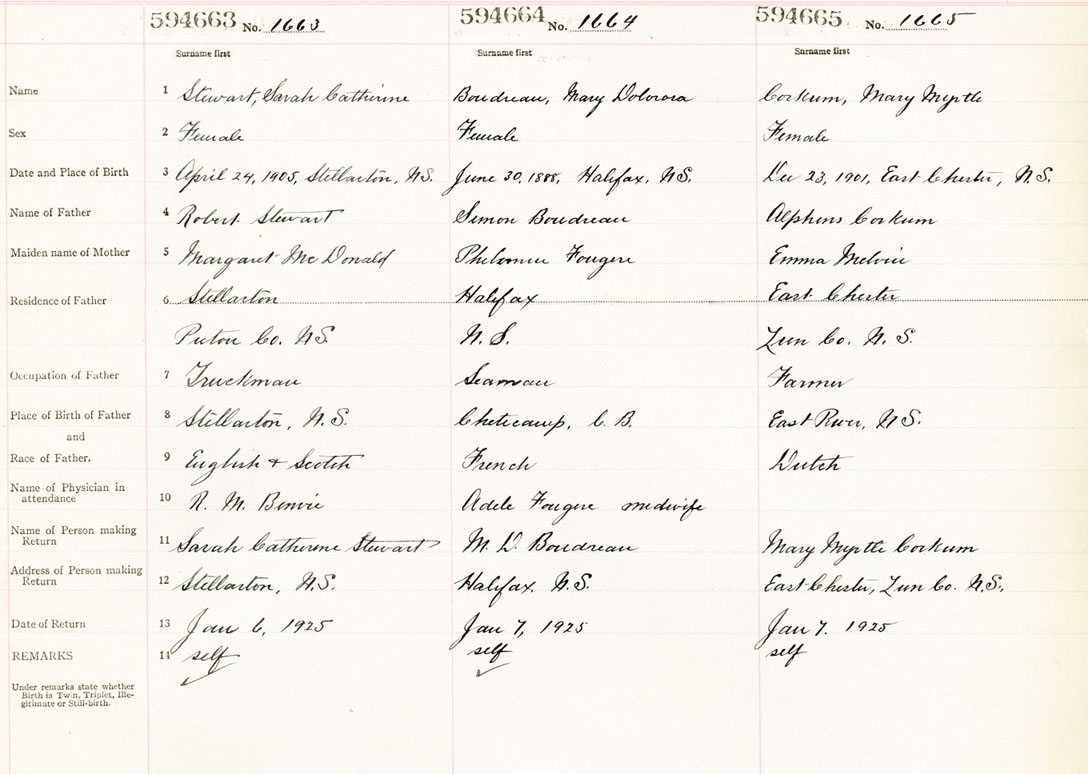 594663 No. 1663 594664 No. 1664 594665 No. 1665
Surname first Surname first Surname first
Name 1 Stewart, Sarah Catherine Boudreau, Mary Dolorosa Corkum, Mary Myrtle
Sex 2 Female Female Female
Date and Place of Birth 3 April 24, 1905, Stellarton, N.S. June 30, 1888, Halifax, N.S. Dec 23, 1901, East Chester, N.S.
Name of Father 4 Robert Stewart Simon Boudreau Alphens Corkum
Maiden name of Mother 5 Margaret McDonald Philomen Fougere Emma Melvin
Residence of Father 6 Stellarton Halifax East Chester
Pictou Co. N.S. N.S. Lun Co. N.S.
Occupation of Father 7 Truckman Seaman Farmer
Place of Birth of Father 8 Stellarton, N.S. Cheticamp, C.B. East River, N.S.
and
Race of Father. 9 English + Scotch French Dutch
Name of Physician in
attendance 10 R. M. Benvie Adele Fougere midwife
Name of Person making
Return 11 Sarah Catherine Stewart M. D. Boudreau Mary Myrtle Corkum
Address of Person making
Return 12 Stellarton, N.S. Halifax. N.S. East Chester, Lun Co. N.S.
Date of Return 13 Jan 6, 1925 Jan 7, 1925 Jan 7. 1925
REMARKS 14 self self self
Under remarks state whether
Birth is Twin, Triplet, Ille-
gitimate or Still-birth.